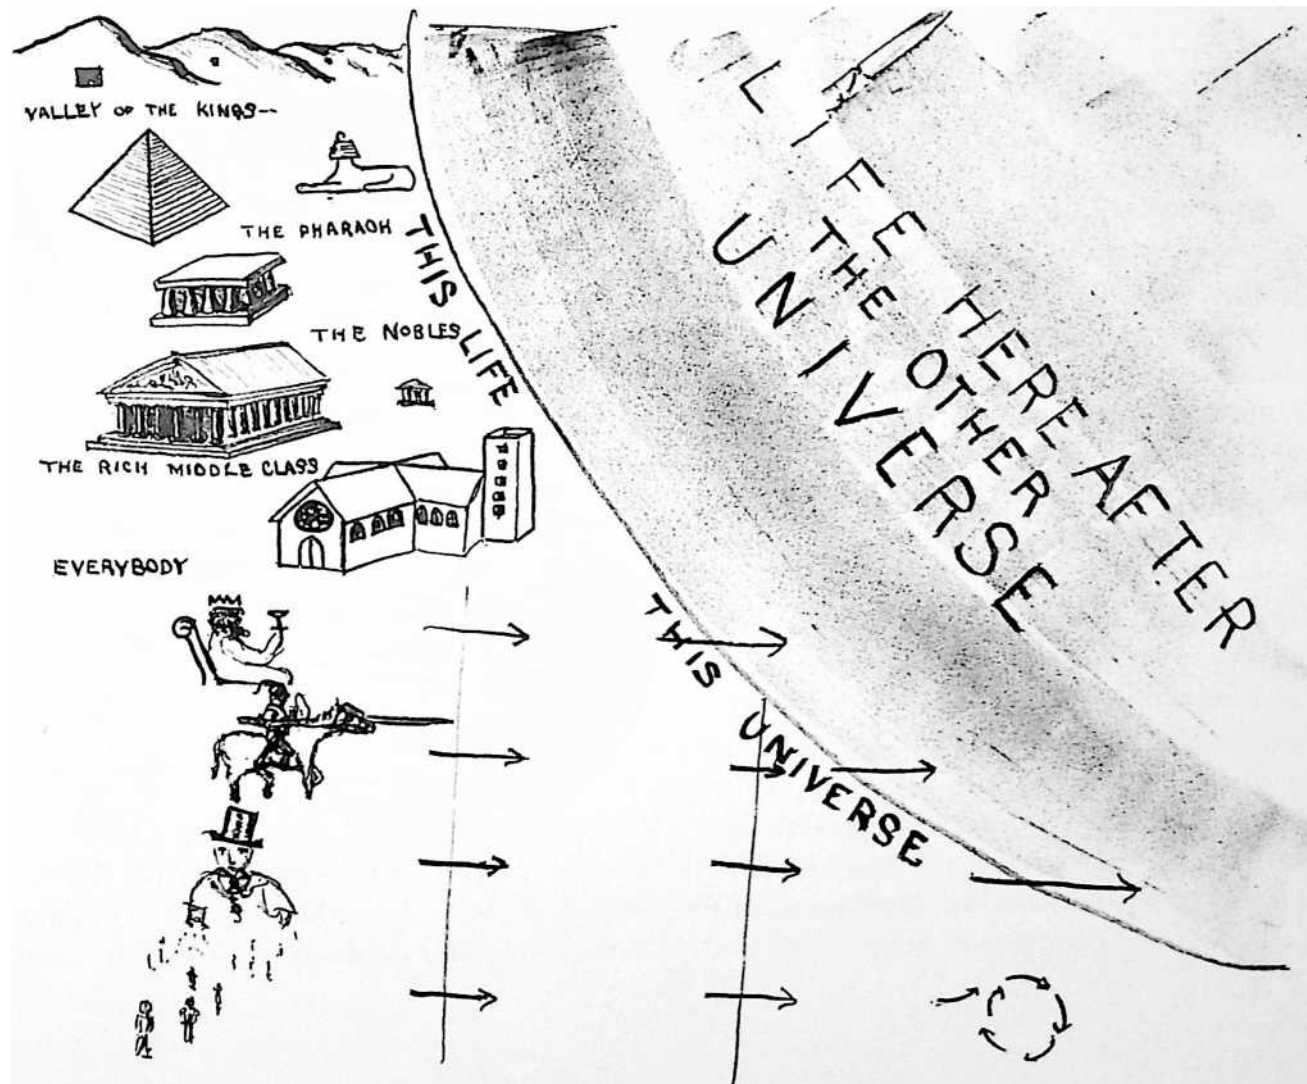 VALLEY OF THE KINGS--
THE PHARAOH
THE NOBLES
THE RICH MIDDLE CLASS
EVERYBODY
THIS LIFE
THIS UNIVERSE
LIFE HERE AFTER
THE OTHER
UNIVERSE